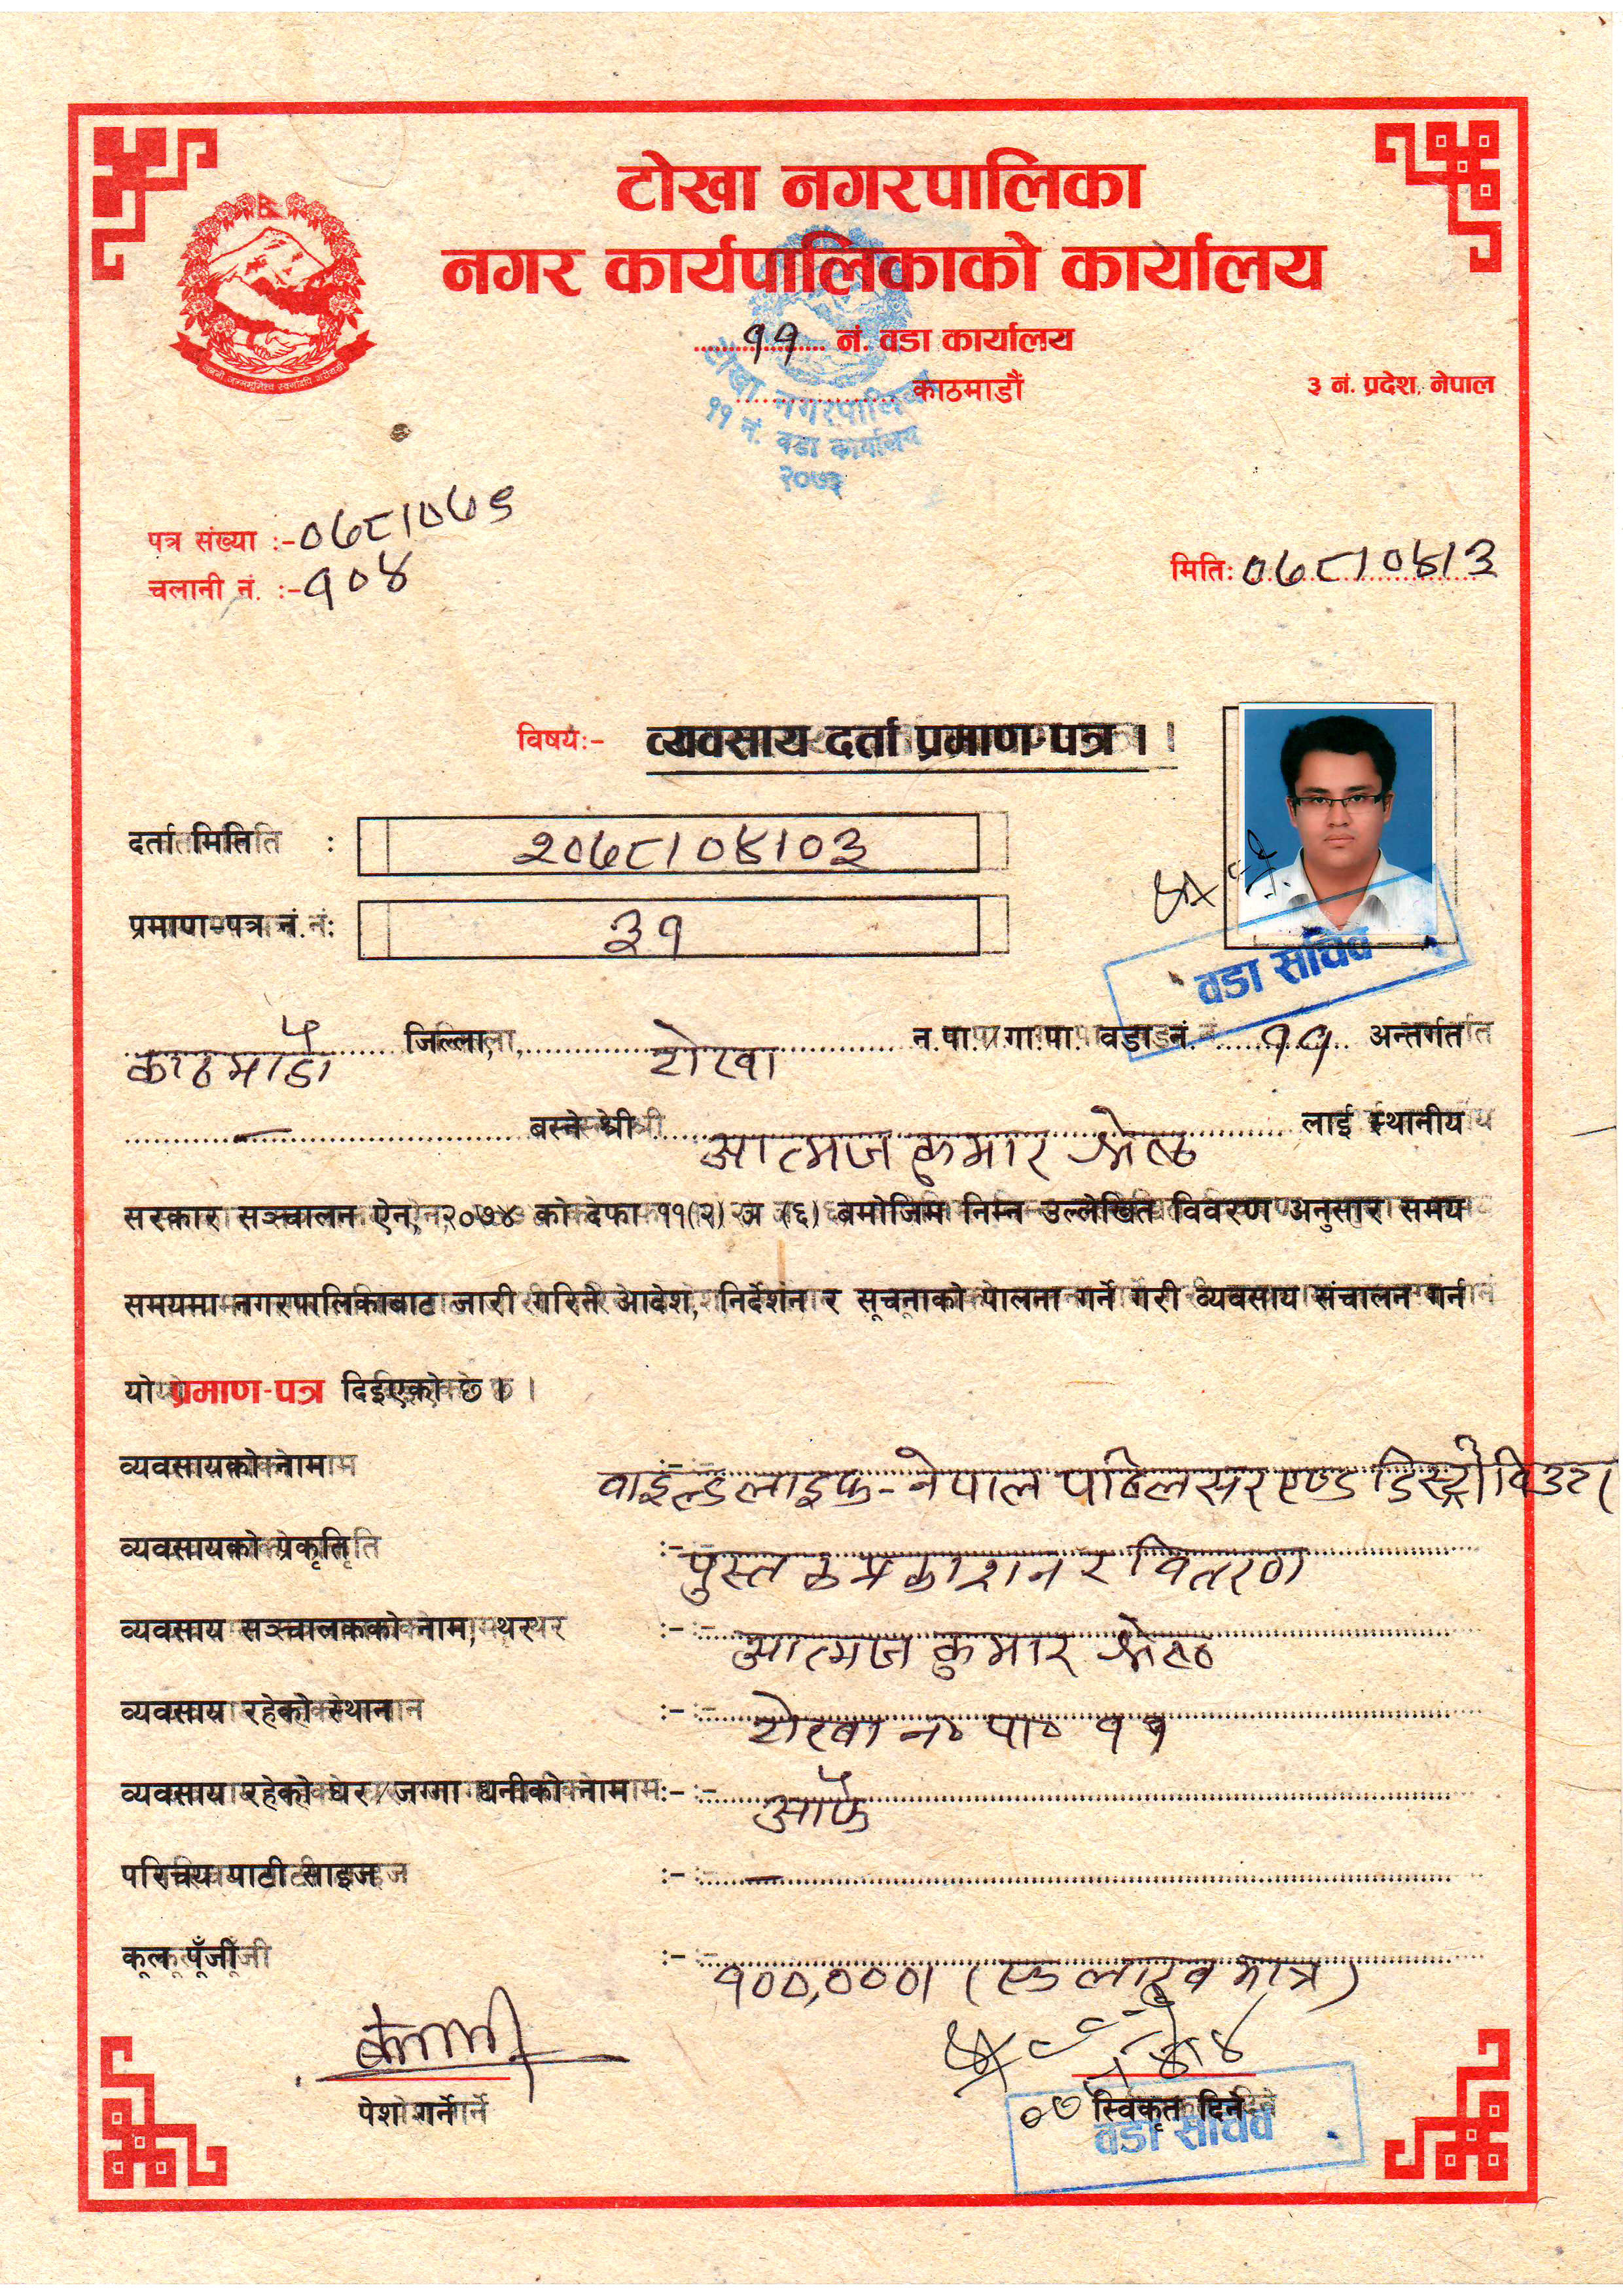 टोखा नगरपालिका
नगर कार्यपालिकाको कार्यालय
११ नं. वडा कार्यालय
काठमाडौं
३ नं. प्रदेश, नेपाल
टोखा नगरपालिका
११ नं. वडा कार्यालय
२०७३
पत्र संख्या :- ०७८।०७९
चलानी नं. :- १०४
मितिः ०७८।०४।३
विषयः- व्यवसाय दर्ता प्रमाण-पत्र ।
दर्ता मिति : २०७८।०४।०३
प्रमाण-पत्र नं. : ३१
वडा सचिव
काठमाडौं जिल्ला, टोखा न.पा./गा.पा. वडा नं. ११ अन्तर्गत
— बस्ने श्री आत्मज कुमार श्रेष्ठ लाई स्थानीय
सरकार सञ्चालन ऐन, २०७४ को दफा ११(२) अ (६) बमोजिम निम्न उल्लेखित विवरण अनुसार समय
समयमा नगरपालिकाबाट जारी गरिने आदेश, निर्देशन र सूचनाको पालना गर्ने गरी व्यवसाय संचालन गर्न
यो प्रमाण-पत्र दिईएको छ ।
व्यवसायको नाम :- वाइल्डलाइफ-नेपाल पब्लिसर एण्ड डिस्ट्रीविउटर
व्यवसायको प्रकृति :- पुस्तक प्रकाशन र वितरण
व्यवसाय सञ्चालकको नाम, थर :- आत्मज कुमार श्रेष्ठ
व्यवसाय रहेको स्थान :- टोखा न० पा० ११
व्यवसाय रहेको घर/जग्गा धनीको नाम :- आफै
परिचय पाटी साइज :- —
कूल पूँजी :- १००,०००। (एक लाख मात्र)
पेश गर्ने
स्विकृत दिने
वडा सचिव